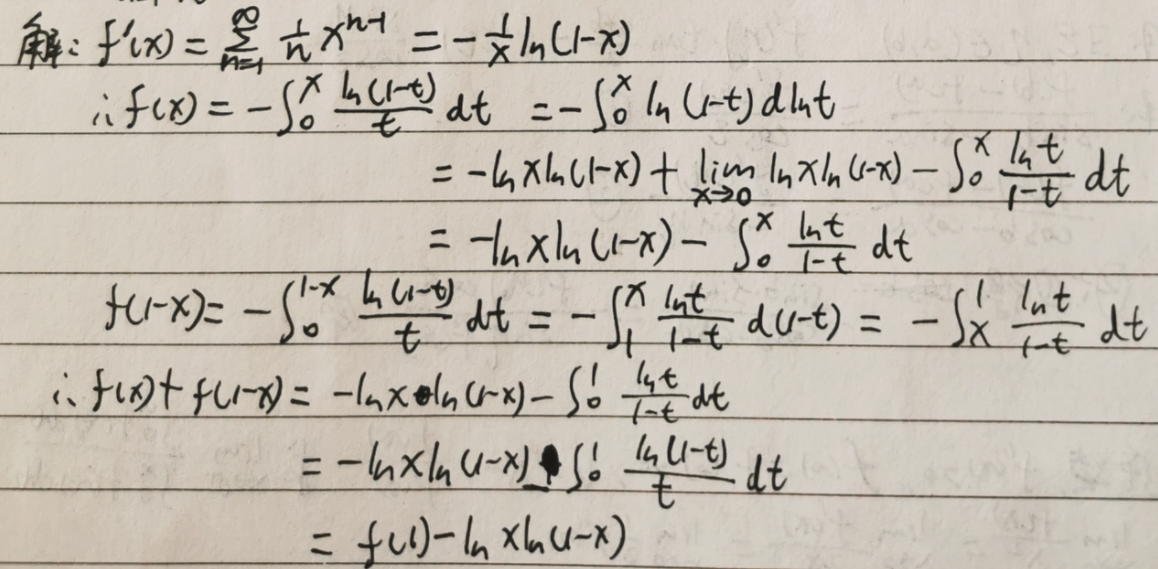 解: f'(x) = ∑_{n=1}^{∞} 1/n x^{n-1} = -1/x ln(1-x)
∴ f(x) = -∫_0^x ln(1-t)/t dt = -∫_0^x ln(1-t) dlnt
= -ln x ln(1-x) + lim_{x→0} ln x ln(1-x) - ∫_0^x ln t/(1-t) dt
= -ln x ln(1-x) - ∫_0^x ln t/(1-t) dt
f(1-x) = -∫_0^{1-x} ln(1-t)/t dt = -∫_1^x ln t/(1-t) d(1-t) = -∫_x^1 ln t/(1-t) dt
∴ f(x) + f(1-x) = -ln x ln(1-x) - ∫_0^1 ln t/(1-t) dt
= -ln x ln(1-x) - ∫_0^1 ln(1-t)/t dt
= f(1) - ln x ln(1-x)